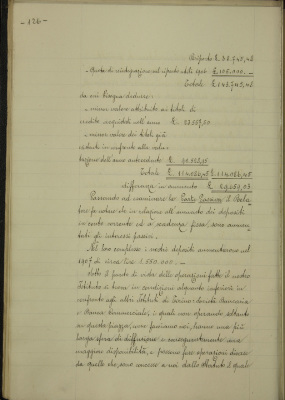 - 126 -
Riporto £ 38.743,42
- Quota di reintegrazione sul riparto utili 1906 £ 105.000.—
Totale £ 143.743,42
da cui bisogna dedurre:
- minor valore attribuito ai titoli di
credito acquistati nell'anno £
- minor valore dei titoli già
esistenti in confronto alla valu-
tazione dell'anno antecedente £
Totale £ 114.086,45 £ 114.086,45
differenza in aumento £
Passando ad esaminare la Parte Passiva il Rela-
tore fa notare che in relazione all'aumento dei depositi
in conto corrente ed a scadenza fissa sono aumen-
tati gli interessi passivi.
Nel loro complesso i nostri depositi aumentarono nel
1907 di circa lire 1.550.000.—
Sotto il punto di vista delle operazioni fatte il nostro
Istituto si trova in condizioni alquanto inferiori in
confronto agli altri Istituti di Torino: Società Bancaria
e Banca Commerciale, i quali non operando soltanto
su questa piazza, come facciamo noi, hanno una più
larga sfera di diffusione e conseguentemente una
maggiore disponibilità, e possono fare operazioni diverse
da quelle che sono concesse a noi dallo Statuto il quale